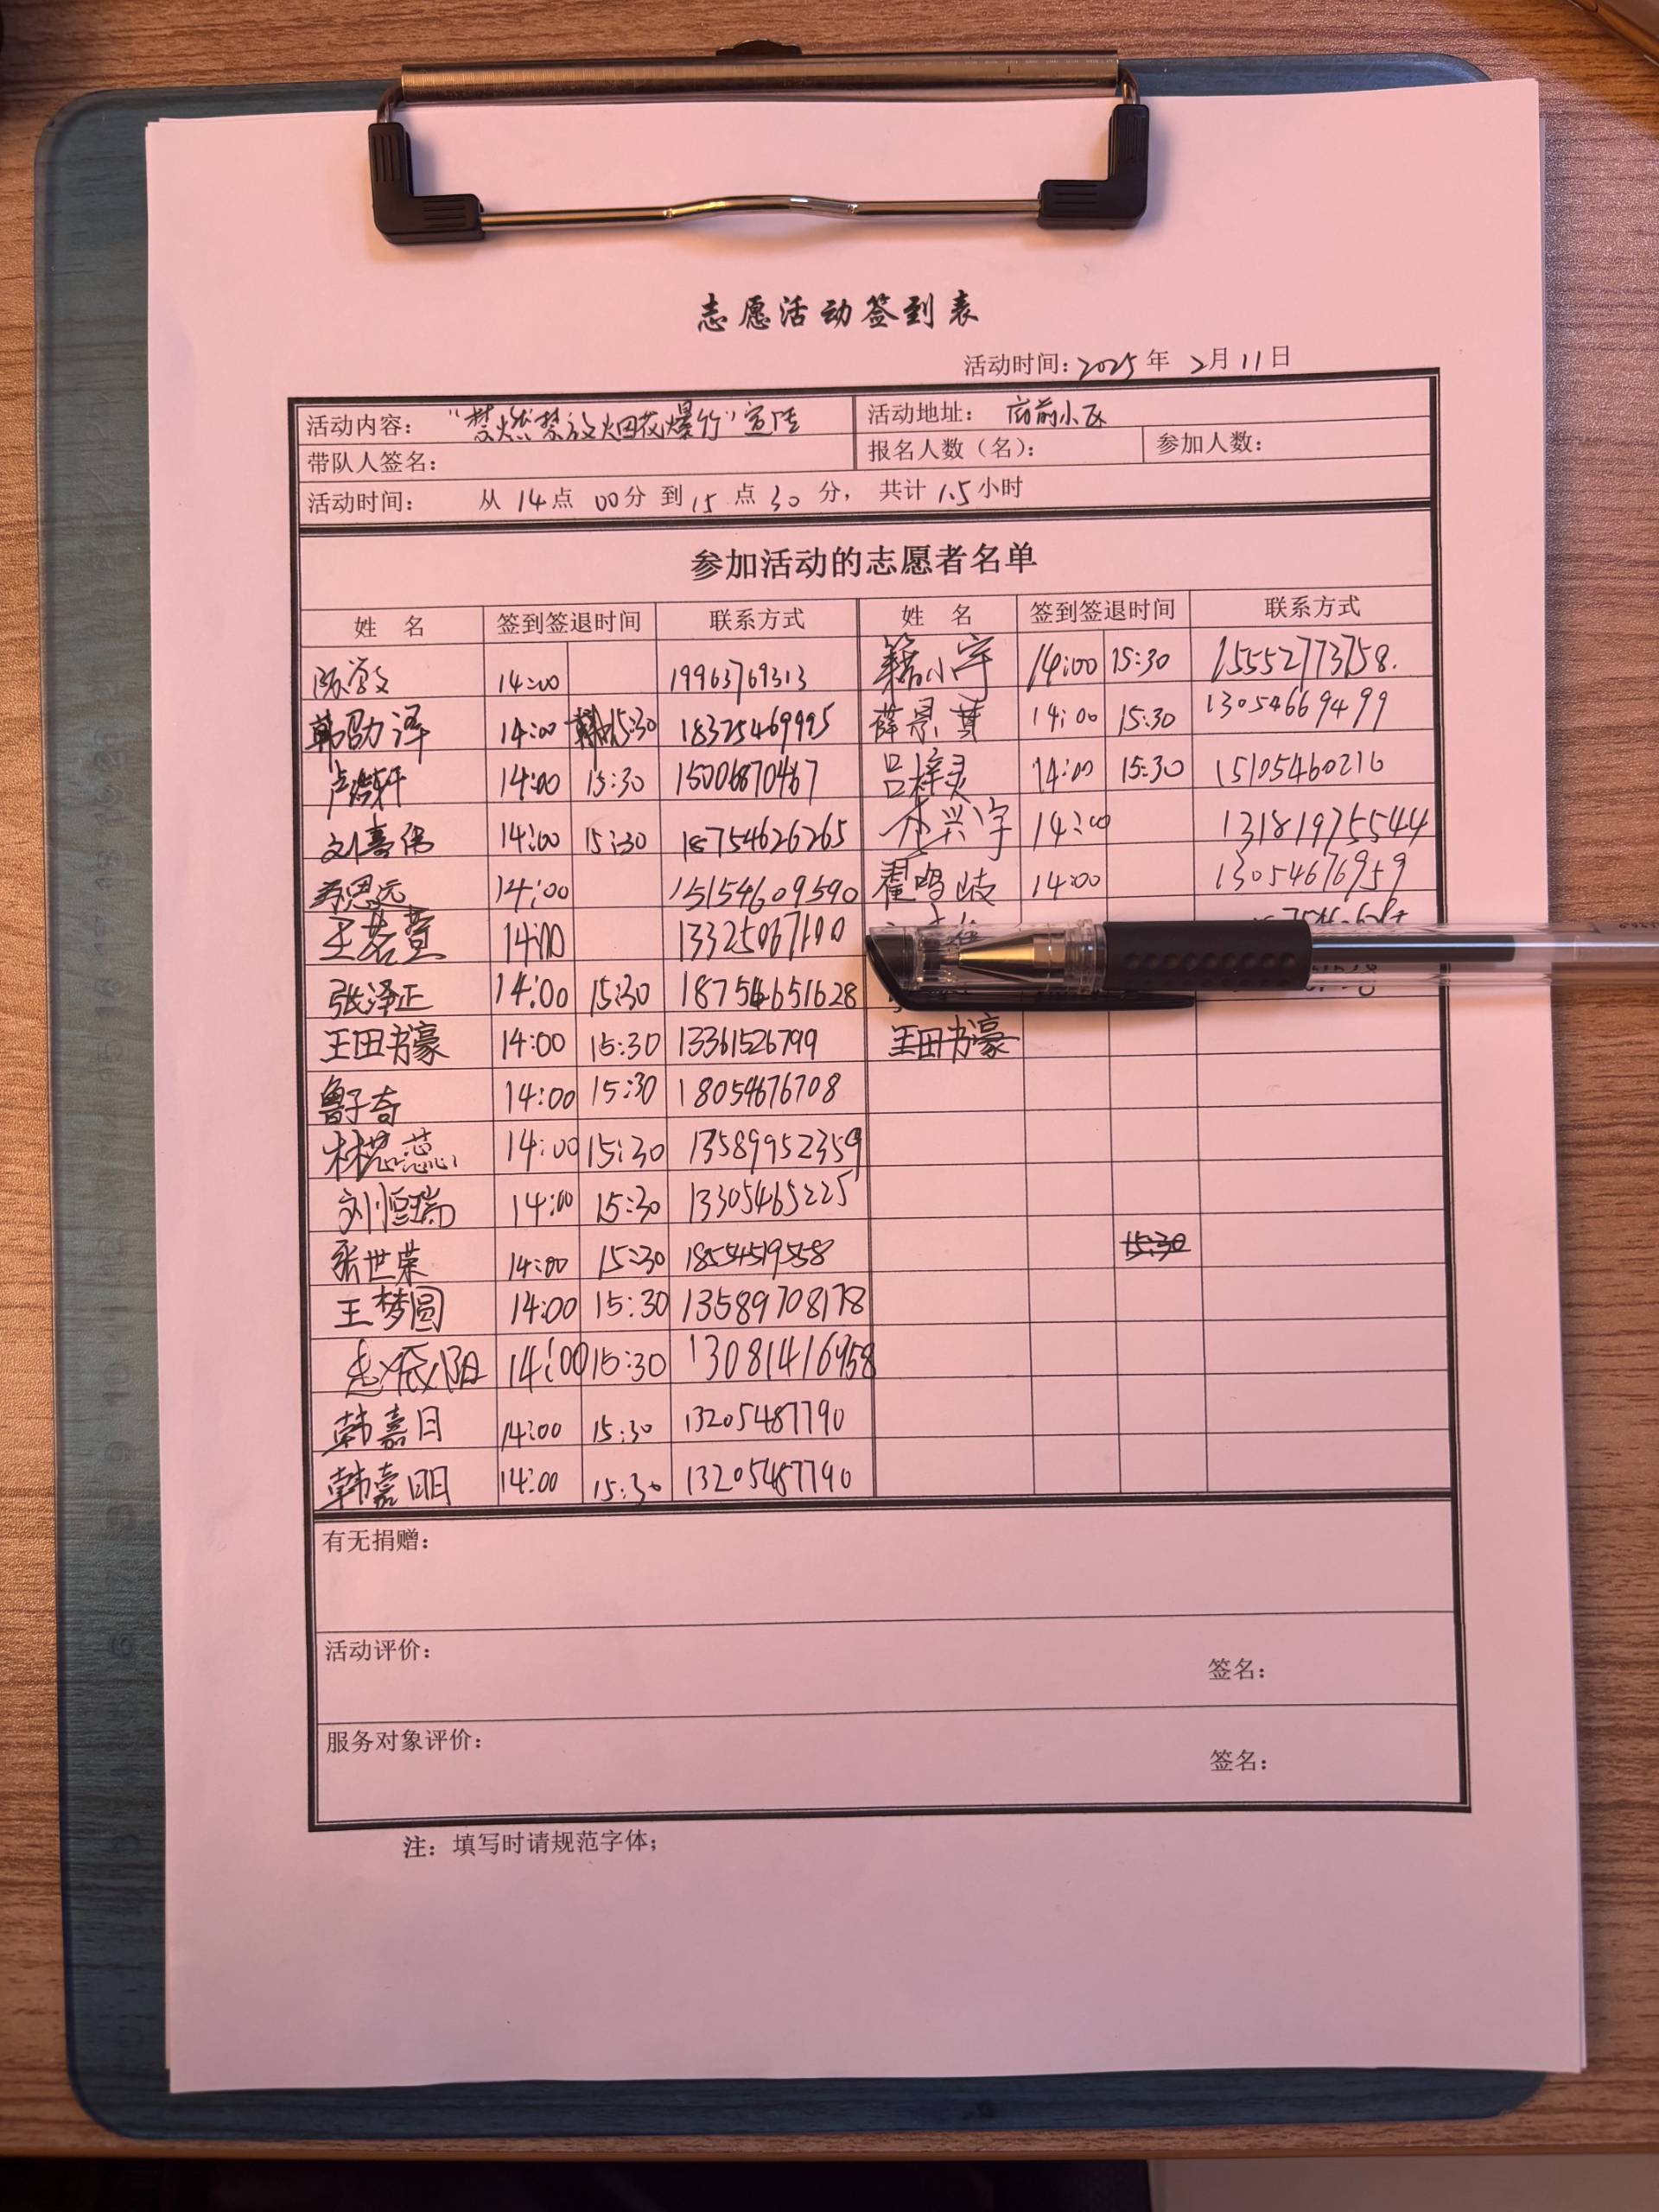 志愿活动签到表
活动时间：2025年 2月11日
活动内容： "禁燃禁放烟花爆竹"宣传 活动地址： 府前小区
带队人签名： 报名人数（名）： 参加人数：
活动时间： 从 14点 00分 到 15点 30分， 共计 1.5小时
参加活动的志愿者名单
姓 名 签到签退时间 联系方式 姓 名 签到签退时间 联系方式
14:00 19963769313 籍小宇 14:00 15:30 15552773758.
韩劭泽 14:00 15:30 18325469995 薛景 14:00 15:30 13054669499
14:00 15:30 15006870467 吕梓灵 14:00 15:30 15105460216
刘嘉伟 14:00 15:30 18754626265 兴宇 14:00 13181975544
思远 14:00 15154609590 翟鸣岐 14:00 13054676959
王若萱 14:00 13325067100
张泽正 14:00 15:30 18754651628
王田书豪 14:00 15:30 13361526799 王田书豪
鲁子奇 14:00 15:30 18054676708
林芯蕊 14:00 15:30 13589952359
刘恒瑞 14:00 15:30 13305465225
张世荣 14:00 15:30 18554519558 15:30
王梦圆 14:00 15:30 13589708178
14:00 15:30 13081416958
韩嘉日 14:00 15:30 13205487790
韩嘉明 14:00 15:30 13205487790
有无捐赠：
活动评价：
签名：
服务对象评价：
签名：
注：填写时请规范字体；